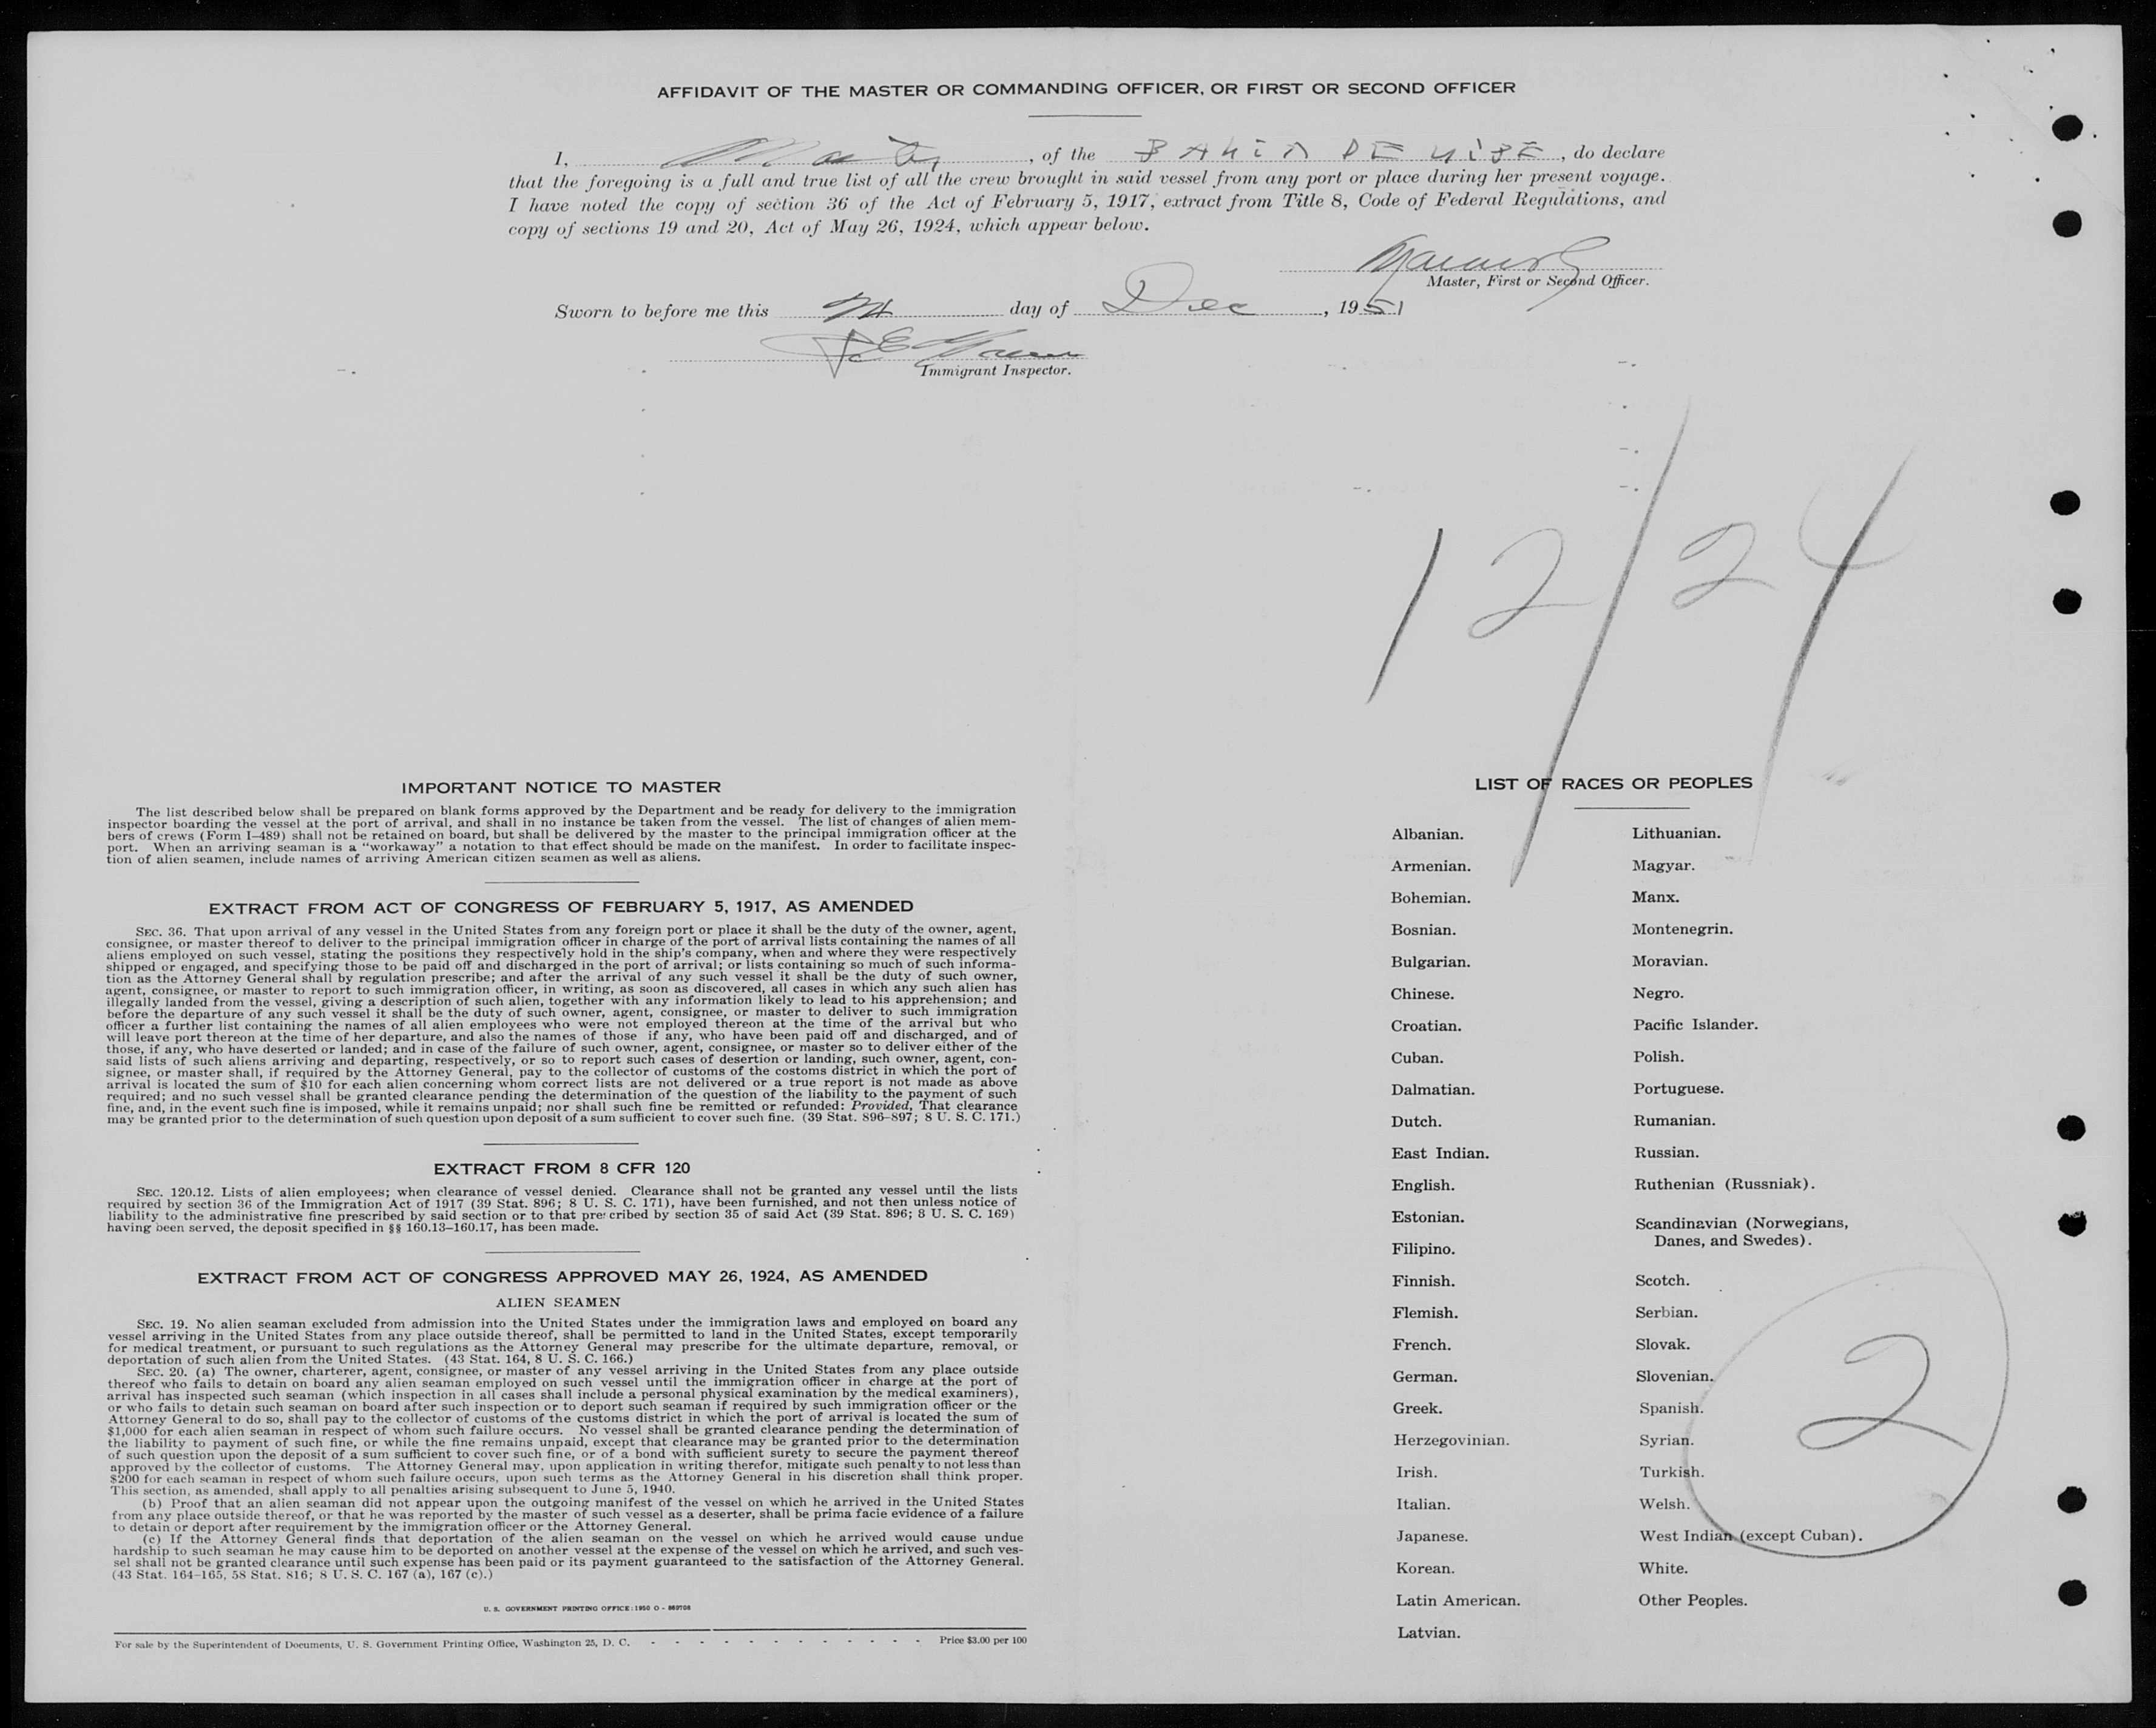 AFFIDAVIT OF THE MASTER OR COMMANDING OFFICER, OR FIRST OR SECOND OFFICER
I, , of the BAHIA DE NIPE, do declare
that the foregoing is a full and true list of all the crew brought in said vessel from any port or place during her present voyage.
I have noted the copy of section 36 of the Act of February 5, 1917, extract from Title 8, Code of Federal Regulations, and
copy of sections 19 and 20, Act of May 26, 1924, which appear below.
Master, First or Second Officer.
Sworn to before me this 24 day of Dec, 1951
Immigrant Inspector.
12/24
IMPORTANT NOTICE TO MASTER
The list described below shall be prepared on blank forms approved by the Department and be ready for delivery to the immigration
inspector boarding the vessel at the port of arrival, and shall in no instance be taken from the vessel. The list of changes of alien mem-
bers of crews (Form I-489) shall not be retained on board, but shall be delivered by the master to the principal immigration officer at the
port. When an arriving seaman is a "workaway" a notation to that effect should be made on the manifest. In order to facilitate inspec-
tion of alien seamen, include names of arriving American citizen seamen as well as aliens.
EXTRACT FROM ACT OF CONGRESS OF FEBRUARY 5, 1917, AS AMENDED
SEC. 36. That upon arrival of any vessel in the United States from any foreign port or place it shall be the duty of the owner, agent,
consignee, or master thereof to deliver to the principal immigration officer in charge of the port of arrival lists containing the names of all
aliens employed on such vessel, stating the positions they respectively hold in the ship's company, when and where they were respectively
shipped or engaged, and specifying those to be paid off and discharged in the port of arrival; or lists containing so much of such informa-
tion as the Attorney General shall by regulation prescribe; and after the arrival of any such vessel it shall be the duty of such owner,
agent, consignee, or master to report to such immigration officer, in writing, as soon as discovered, all cases in which any such alien has
illegally landed from the vessel, giving a description of such alien, together with any information likely to lead to his apprehension; and
before the departure of any such vessel it shall be the duty of such owner, agent, consignee, or master to deliver to such immigration
officer a further list containing the names of all alien employees who were not employed thereon at the time of the arrival but who
will leave port thereon at the time of her departure, and also the names of those if any, who have been paid off and discharged, and of
those, if any, who have deserted or landed; and in case of the failure of such owner, agent, consignee, or master so to deliver either of the
said lists of such aliens arriving and departing, respectively, or so to report such cases of desertion or landing, such owner, agent, con-
signee, or master shall, if required by the Attorney General, pay to the collector of customs of the costoms district in which the port of
arrival is located the sum of $10 for each alien concerning whom correct lists are not delivered or a true report is not made as above
required; and no such vessel shall be granted clearance pending the determination of the question of the liability to the payment of such
fine, and, in the event such fine is imposed, while it remains unpaid; nor shall such fine be remitted or refunded: Provided, That clearance
may be granted prior to the determination of such question upon deposit of a sum sufficient to cover such fine. (39 Stat. 896-897; 8 U. S. C. 171.)
EXTRACT FROM 8 CFR 120
SEC. 120.12. Lists of alien employees; when clearance of vessel denied. Clearance shall not be granted any vessel until the lists
required by section 36 of the Immigration Act of 1917 (39 Stat. 896; 8 U. S. C. 171), have been furnished, and not then unless notice of
liability to the administrative fine prescribed by said section or to that pre cribed by section 35 of said Act (39 Stat. 896; 8 U. S. C. 169)
having been served, the deposit specified in §§ 160.13-160.17, has been made.
EXTRACT FROM ACT OF CONGRESS APPROVED MAY 26, 1924, AS AMENDED
ALIEN SEAMEN
SEC. 19. No alien seaman excluded from admission into the United States under the immigration laws and employed on board any
vessel arriving in the United States from any place outside thereof, shall be permitted to land in the United States, except temporarily
for medical treatment, or pursuant to such regulations as the Attorney General may prescribe for the ultimate departure, removal, or
deportation of such alien from the United States. (43 Stat. 164, 8 U. S. C. 166.)
SEC. 20. (a) The owner, charterer, agent, consignee, or master of any vessel arriving in the United States from any place outside
thereof who fails to detain on board any alien seaman employed on such vessel until the immigration officer in charge at the port of
arrival has inspected such seaman (which inspection in all cases shall include a personal physical examination by the medical examiners),
or who fails to detain such seaman on board after such inspection or to deport such seaman if required by such immigration officer or the
Attorney General to do so, shall pay to the collector of customs of the customs district in which the port of arrival is located the sum of
$1,000 for each alien seaman in respect of whom such failure occurs. No vessel shall be granted clearance pending the determination of
the liability to payment of such fine, or while the fine remains unpaid, except that clearance may be granted prior to the determination
of such question upon the deposit of a sum sufficient to cover such fine, or of a bond with sufficient surety to secure the payment thereof
approved by the collector of customs. The Attorney General may, upon application in writing therefor, mitigate such penalty to not less than
$200 for each seaman in respect of whom such failure occurs, upon such terms as the Attorney General in his discretion shall think proper.
This section, as amended, shall apply to all penalties arising subsequent to June 5, 1940.
(b) Proof that an alien seaman did not appear upon the outgoing manifest of the vessel on which he arrived in the United States
from any place outside thereof, or that he was reported by the master of such vessel as a deserter, shall be prima facie evidence of a failure
to detain or deport after requirement by the immigration officer or the Attorney General.
(c) If the Attorney General finds that deportation of the alien seaman on the vessel on which he arrived would cause undue
hardship to such seaman he may cause him to be deported on another vessel at the expense of the vessel on which he arrived, and such ves-
sel shall not be granted clearance until such expense has been paid or its payment guaranteed to the satisfaction of the Attorney General.
(43 Stat. 164-165, 58 Stat. 816; 8 U. S. C. 167 (a), 167 (c).)
U. S. GOVERNMENT PRINTING OFFICE: 1950 O - 869708
For sale by the Superintendent of Documents, U. S. Government Printing Office, Washington 25, D. C. - - - - - - - - - - - - - Price $3.00 per 100
LIST OF RACES OR PEOPLES
Albanian.
Armenian.
Bohemian.
Bosnian.
Bulgarian.
Chinese.
Croatian.
Cuban.
Dalmatian.
Dutch.
East Indian.
English.
Estonian.
Filipino.
Finnish.
Flemish.
French.
German.
Greek.
Herzegovinian.
Irish.
Italian.
Japanese.
Korean.
Latin American.
Latvian.
Lithuanian.
Magyar.
Manx.
Montenegrin.
Moravian.
Negro.
Pacific Islander.
Polish.
Portuguese.
Rumanian.
Russian.
Ruthenian (Russniak).
Scandinavian (Norwegians,
Danes, and Swedes).
Scotch.
Serbian.
Slovak.
Slovenian.
Spanish.
Syrian.
Turkish.
Welsh.
West Indian (except Cuban).
White.
Other Peoples.
2